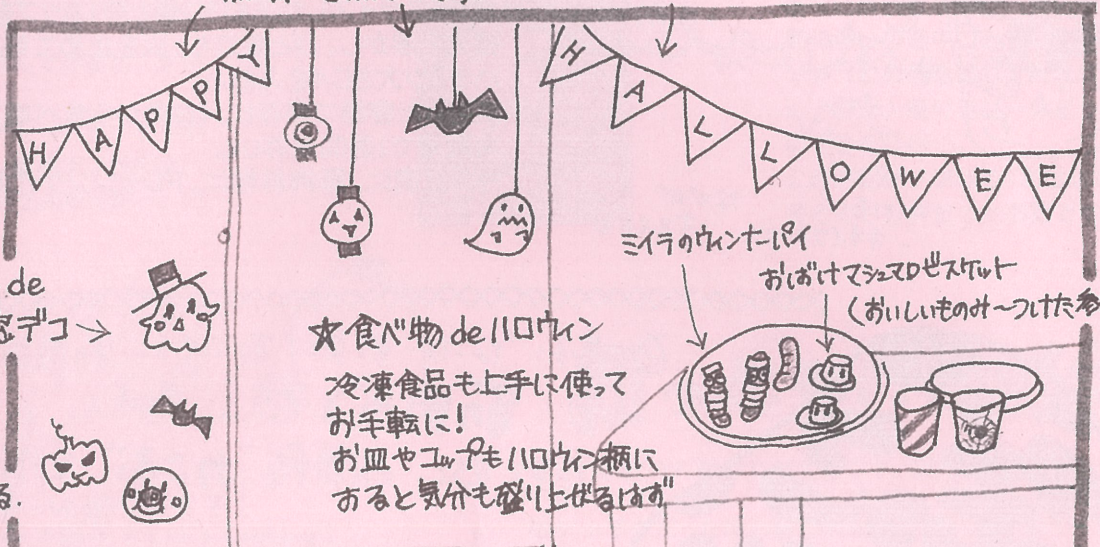 HAPPY
HALLOWEE
ミイラのウィンナーパイ
おばけマシュマロビスケット
(おいしいものみ〜つけた
de
デコ
☆食べ物deハロウィン
冷凍食品も上手に使って
お手転に!
お皿やコップもハロウィン柄に
すると気分も盛り上がるはず
る.